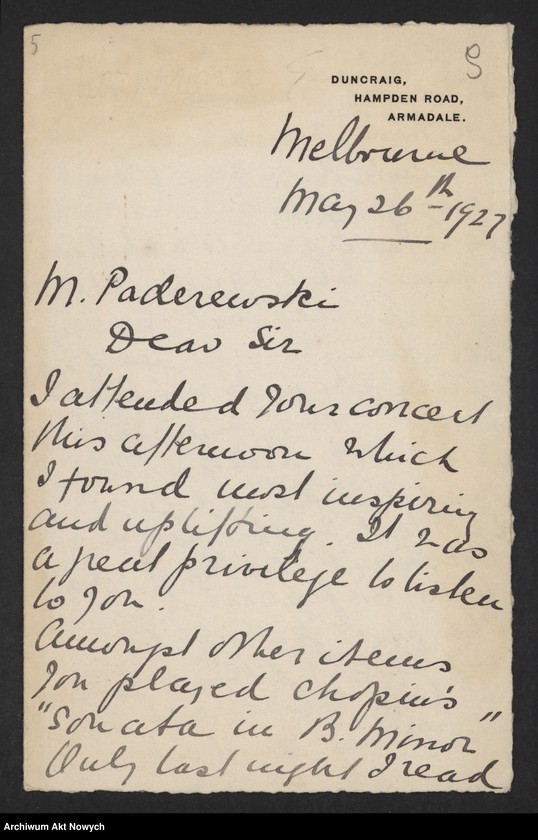 5
DUNCRAIG,
HAMPDEN ROAD,
ARMADALE.
Melbourne
May 26th 1927
M. Paderewski
Dear Sir
I attended your concert
this afternoon which
I found most inspiring
and uplifting. It was
a great privilege to listen
to you.
Amongst other items
you played Chopin's
"Sonata in B. Minor"
Only last night I read
Archiwum Akt Nowych